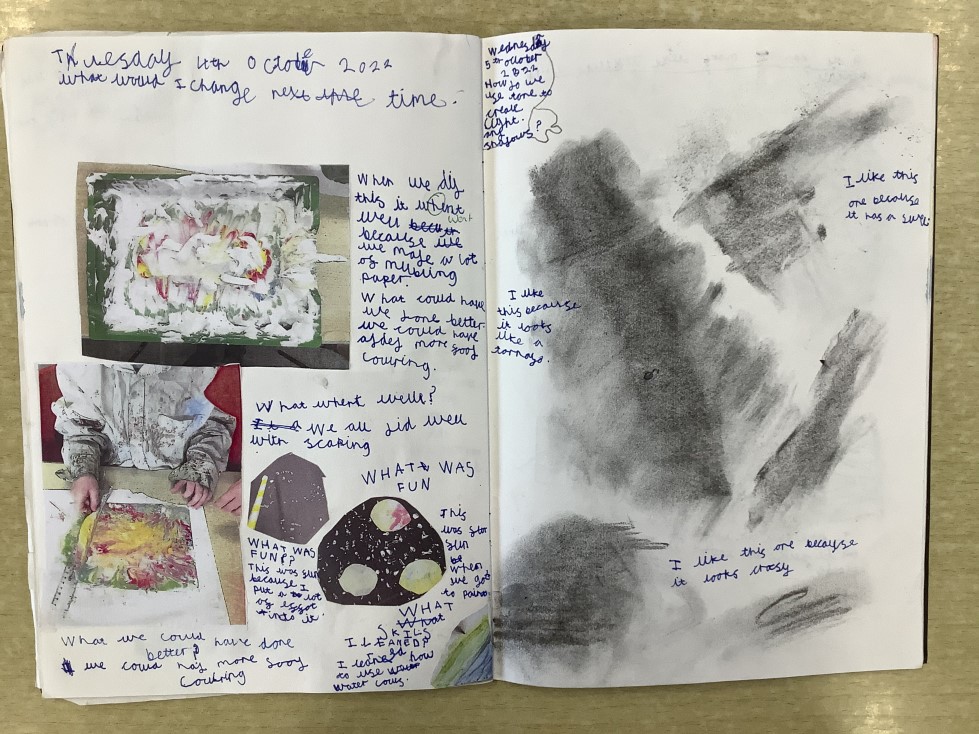 Thuesday 4th October 2022
what would I change next time.
When we dij
this it whent
went
well
because we
we maje a lot
of mybling
paper.
What could have
we done better
we could have
addej more sooj
couring.
What whent wells?
We all did well
with scaping
WHAT WAS
FUN
This
was
fun
be
when
we got
to paint
WHAT WAS
FUN??
This was fun
because I
put a lot
of effot
into it
What we could have done
better?
we could has more sooj
couring
WHAT
SKILS
I LEANED?
I lerned how
to use
water cous.
Wednesday
5th October
2022
How do we
use tone to
create
light.
and
shadows?
I like this
one because
it has a
I like
this because
it looks
like a
tornajo.
I like this one because
it looks crasy